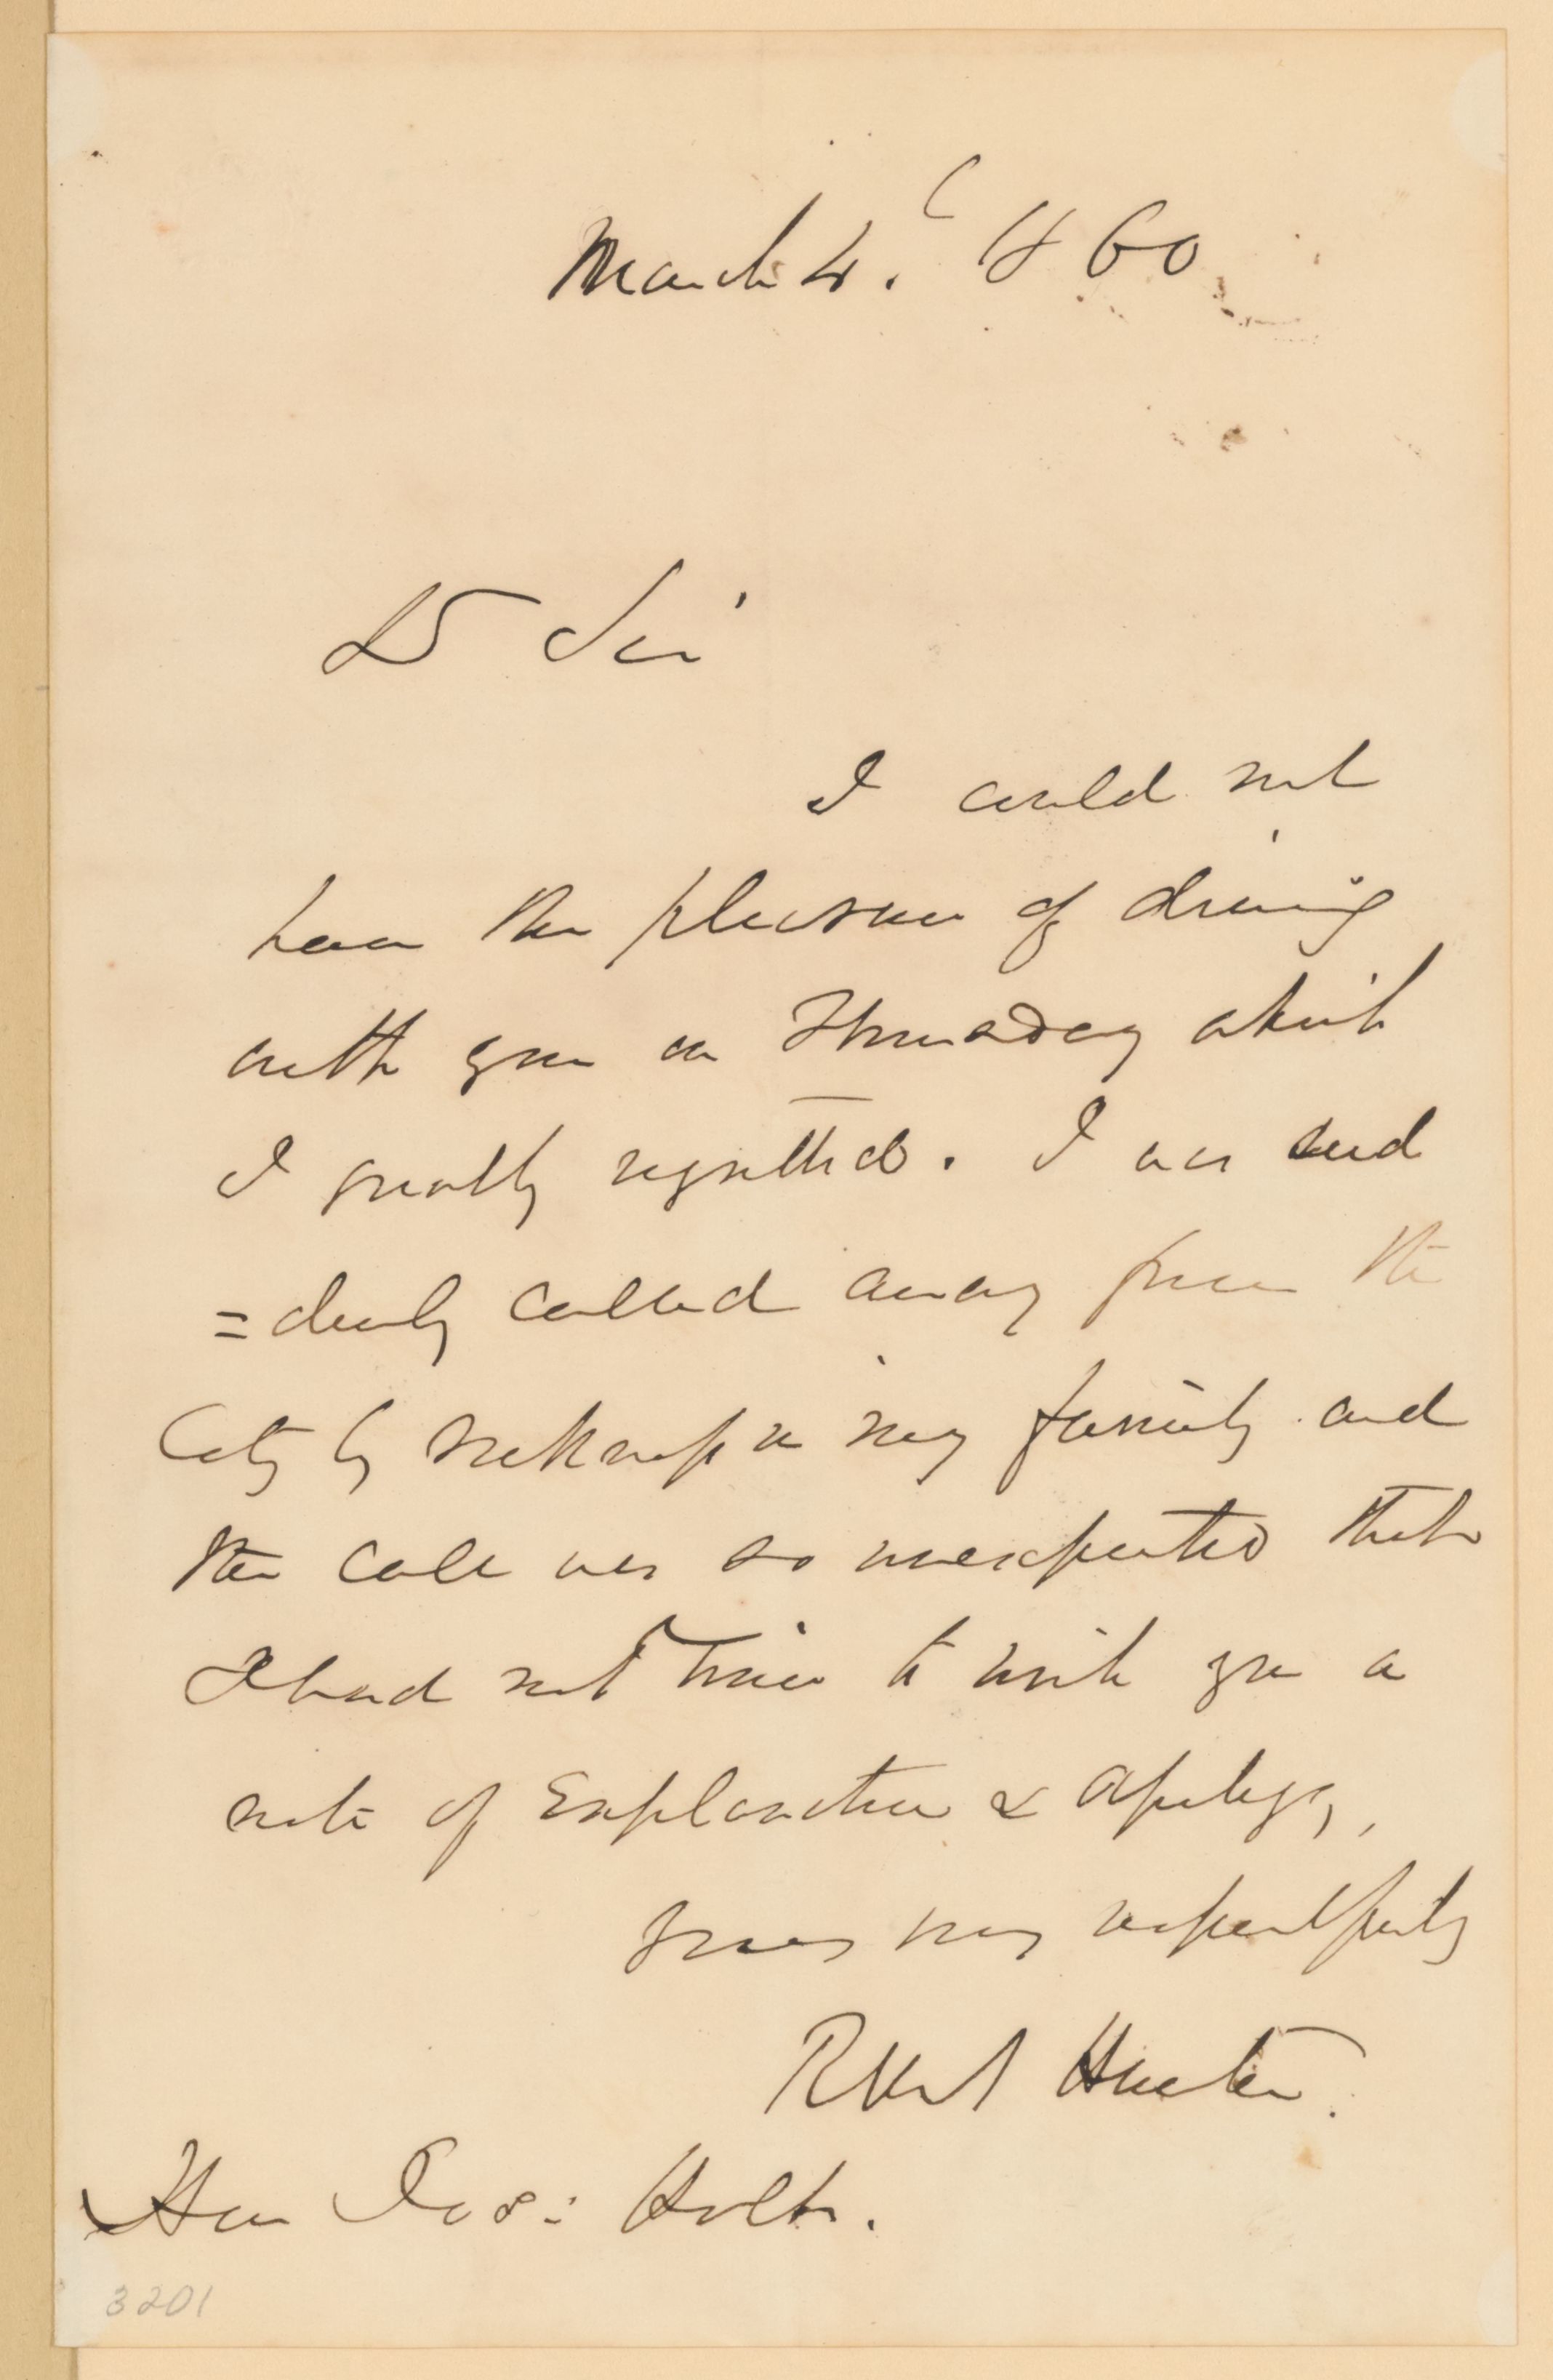 March 4. 1860
D Sir
I could not
have the pleasure of dining
with you on Thursday which
I greatly regretted. I was sud
=denly called away from the
City by sickness in my family and
the call was so unexpected that
I had not time to write you a
note of Explanation & apology,
Yours very respectfully
Hunter.
Hon Jos: Holt.
3201